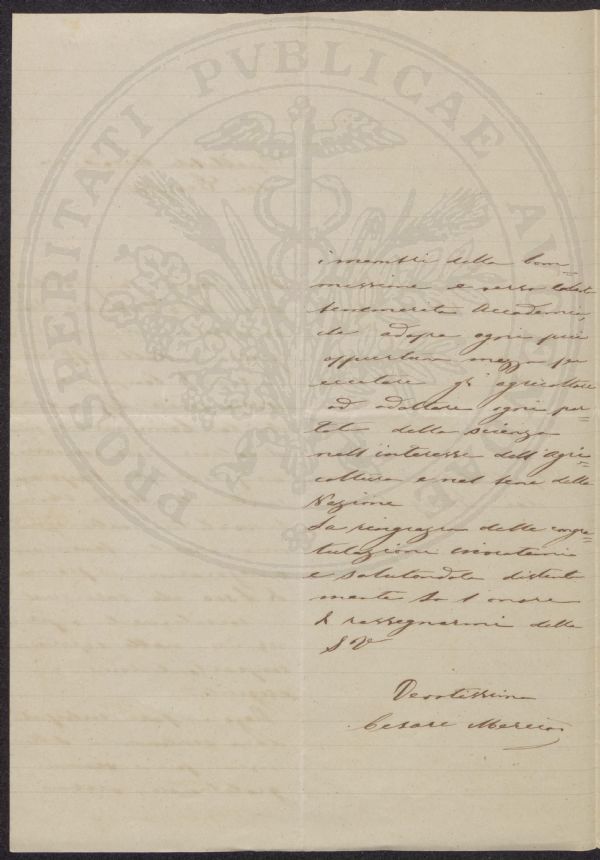 PROSPERITATI PVBLICAE AVGENDAE
i membri della Com=
missione e verso codesta
benemerita Accademia,
che adopra ogni più
opportuno mezzo per
eccitare gl'agricoltori
ad adattare ogni por=
tato della scienza
nell'interesse dell'Agri=
coltura e nel bene della
Nazione
La ringrazio delle congra=
tulazioni inviatemi
e salutandola distinta
mente ho l'onore
di rassegnarmi della
S V
Devotissimo
Cesare